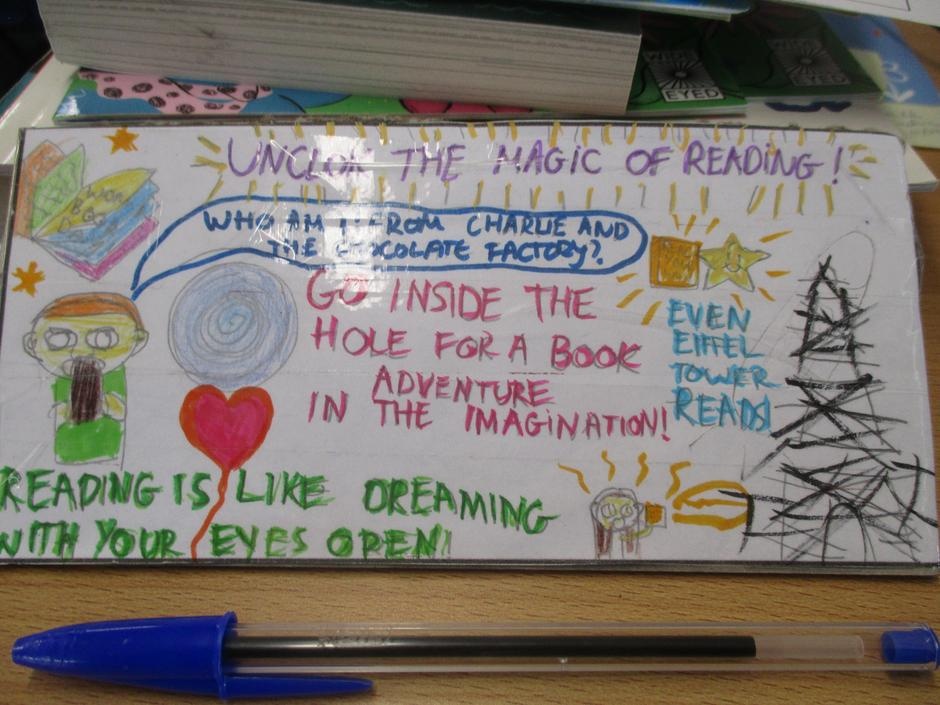 EYED
UNCLOK THE MAGIC OF READING!
WHO AM I FROM CHARLIE AND
THE CHOCOLATE FACTORY?
GO INSIDE THE
HOLE FOR A BOOK
ADVENTURE
IN THE IMAGINATION!
EVEN
EIFFEL
TOWER
READS!
READING IS LIKE DREAMING
WITH YOUR EYES OPEN!